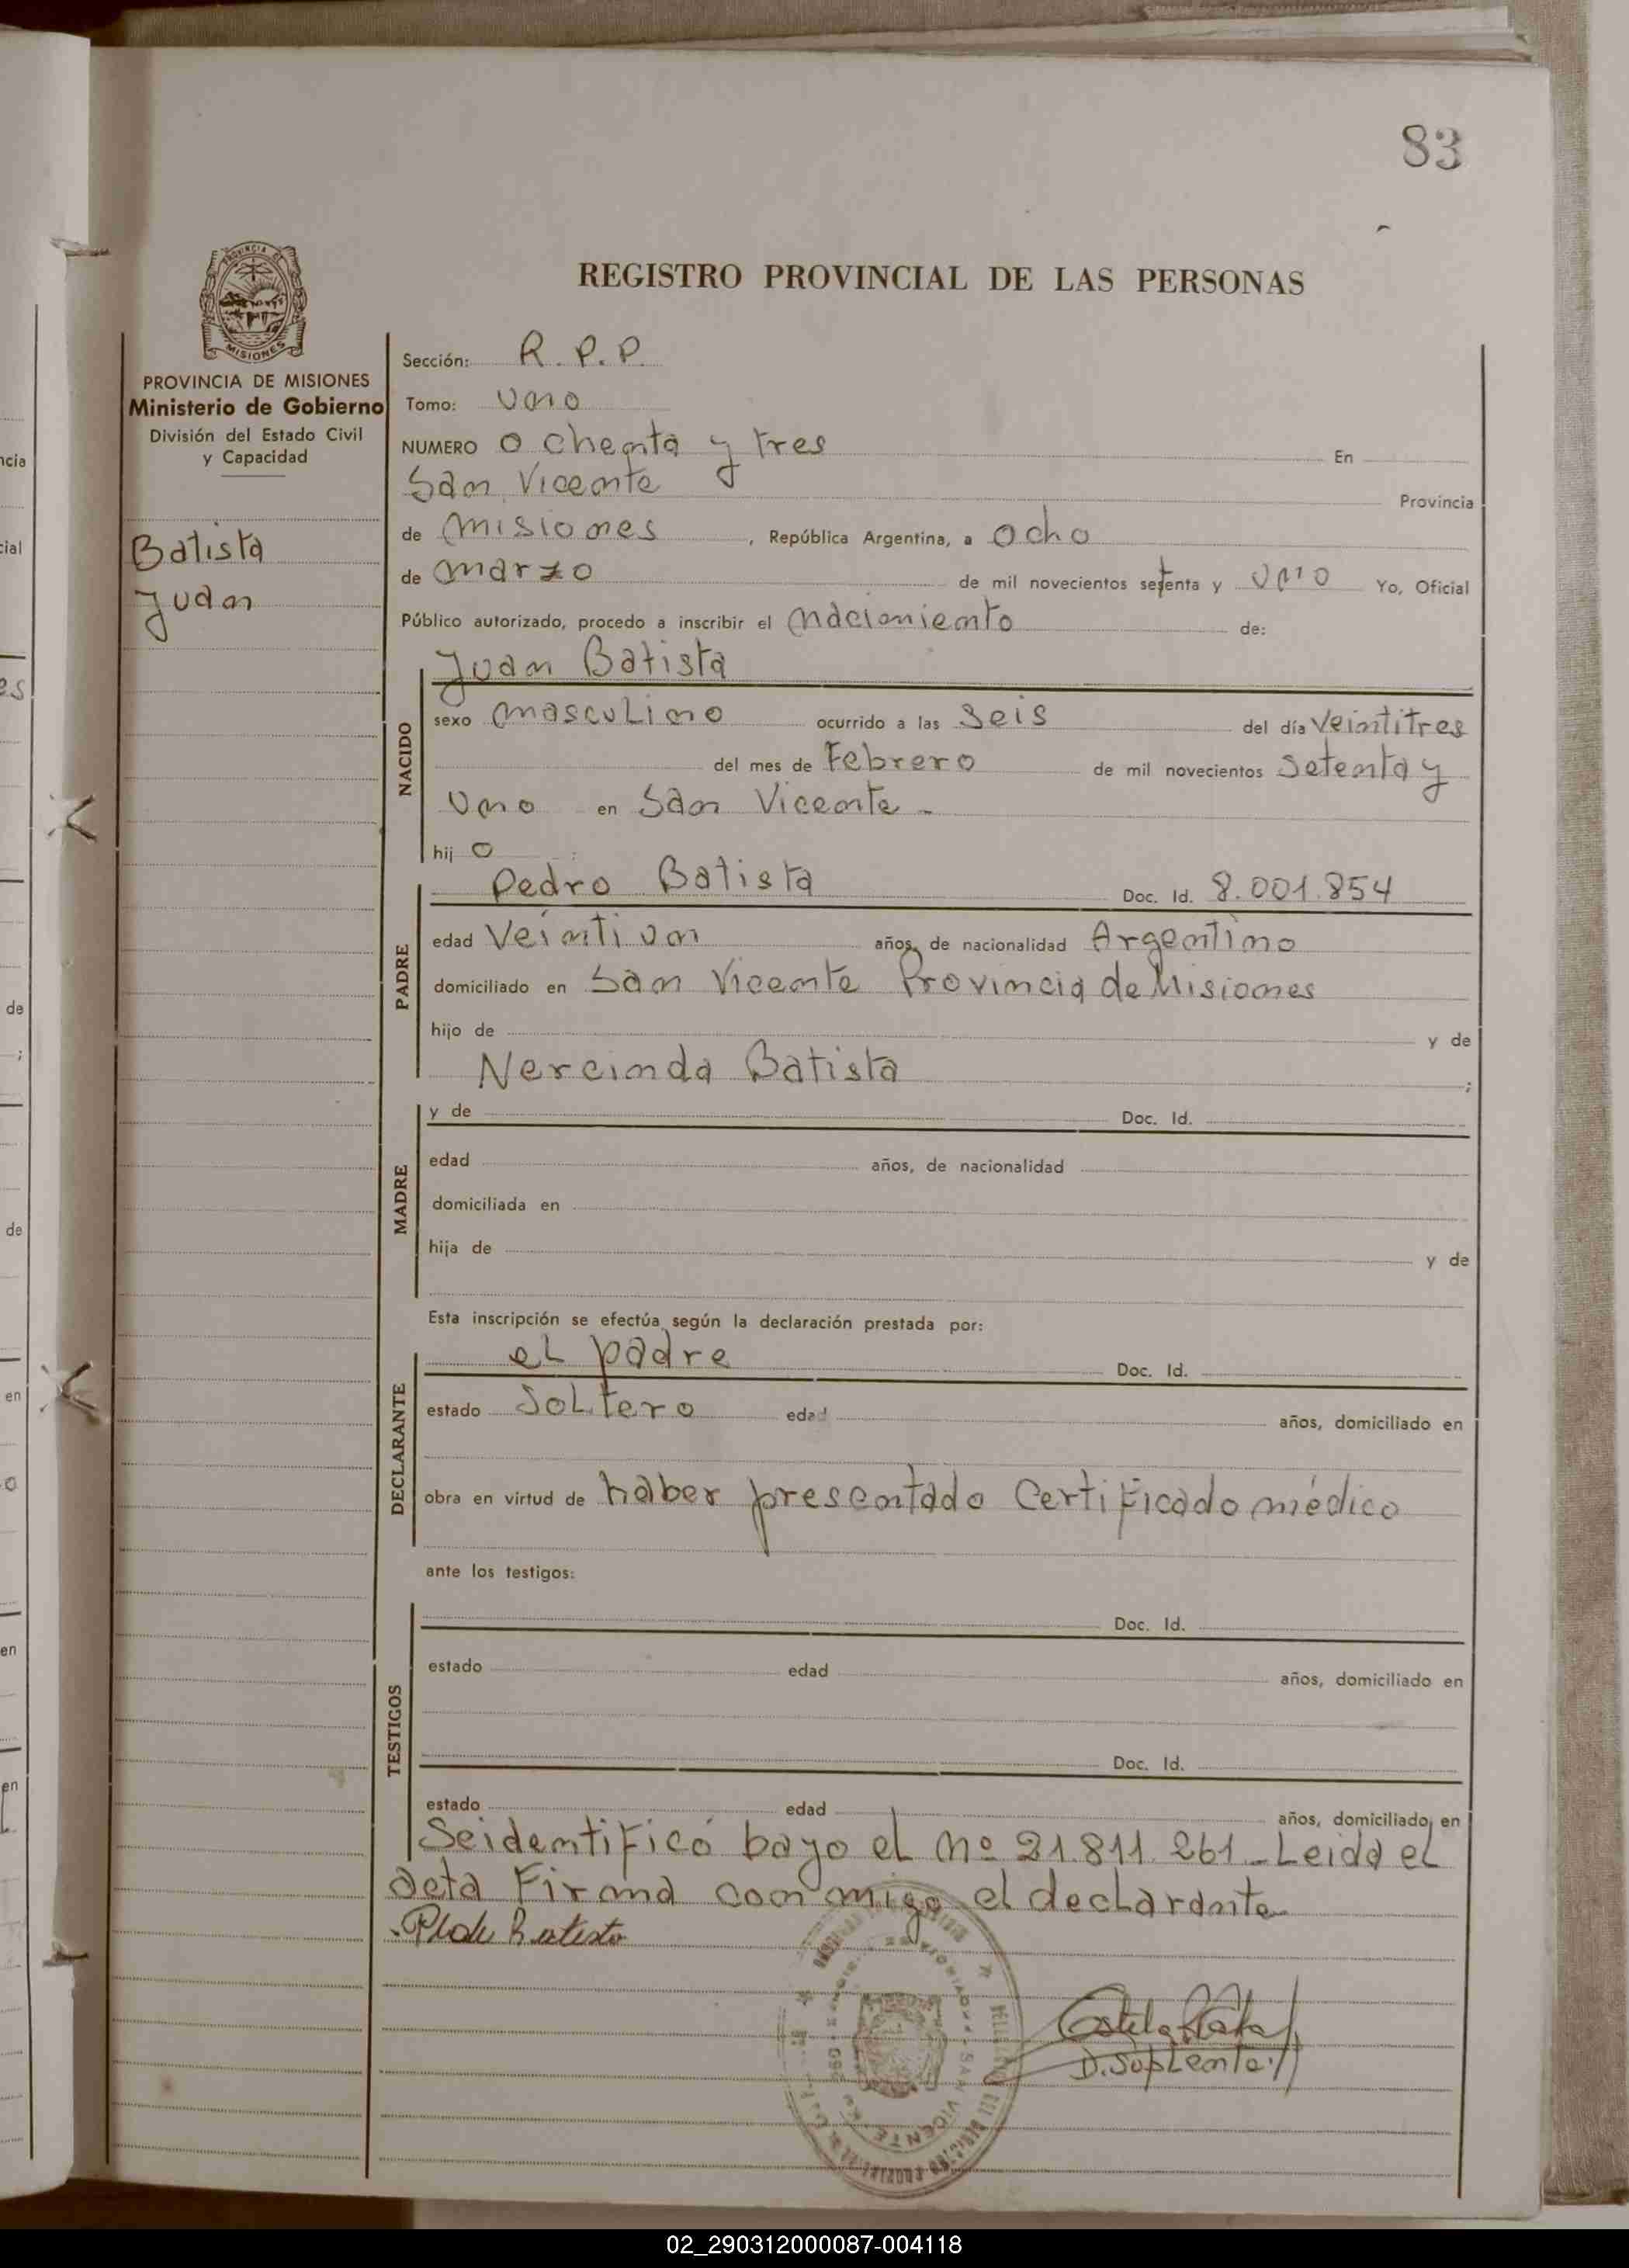 83
REGISTRO PROVINCIAL DE LAS PERSONAS
PROVINCIA DE
MISIONES
PROVINCIA DE MISIONES
Ministerio de Gobierno
División del Estado Civil
y Capacidad
Batista
Juan
Sección: R. P. P.
Tomo: uno
NUMERO Ochenta y tres En
San Vicente Provincia
de Misiones, República Argentina, a Ocho
de marzo de mil novecientos setenta y uno Yo, Oficial
Público autorizado, procedo a inscribir el nacimiento de:
Juan Batista
NACIDO
sexo masculino ocurrido a las seis del día veintitres
del mes de Febrero de mil novecientos setenta y
uno en San Vicente -
hij o :
PADRE
Pedro Batista Doc. Id. 8.001.854
edad Veintiun años, de nacionalidad Argentino
domiciliado en San Vicente Provincia de Misiones
hijo de y de
Nercinda Batista ;
MADRE
y de Doc. Id.
edad años, de nacionalidad
domiciliada en
hija de y de
Esta inscripción se efectúa según la declaración prestada por:
DECLARANTE
el padre Doc. Id.
estado Soltero edad años, domiciliado en
obra en virtud de haber presentado Certificado médico
ante los testigos:
TESTIGOS
Doc. Id.
estado edad años, domiciliado en
Doc. Id.
estado edad años, domiciliado en
Se identificó bajo el nº 21.811.261 - Leida el
acta Firma conmigo el declarante
Batista
SAN VICENTE
D. Suplente
02_290312000087-004118